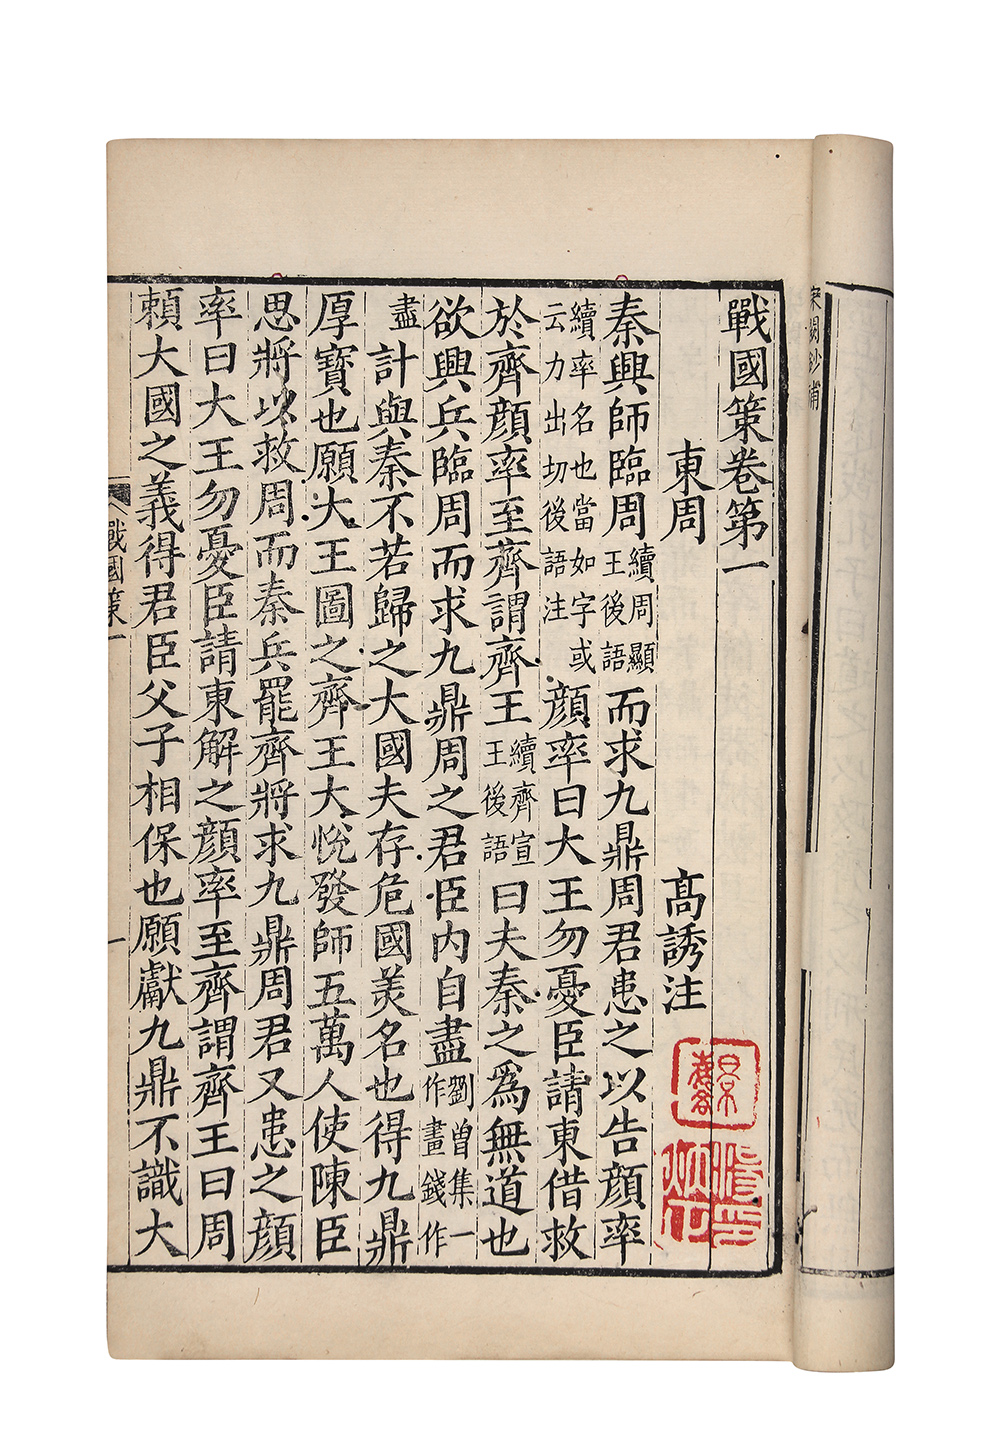 戰國策卷第一
東周　高誘注
秦興師臨周續周顯王後語而求九鼎周君患之以告顏率
續率名也當如字或云力出切後語注顏率曰大王勿憂臣請東借救
於齊顏率至齊謂齊王續齊宣王後語曰夫秦之爲無道也
欲興兵臨周而求九鼎周之君臣内自盡劉曾集一作畫錢作
盡計與秦不若歸之大國夫存危國美名也得九鼎
厚寶也願大王圖之齊王大悅發師五萬人使陳臣
思將以救周而秦兵罷齊將求九鼎周君又患之顏
率曰大王勿憂臣請東解之顏率至齊謂齊王曰周
賴大國之義得君臣父子相保也願獻九鼎不識大
戰國策一
一